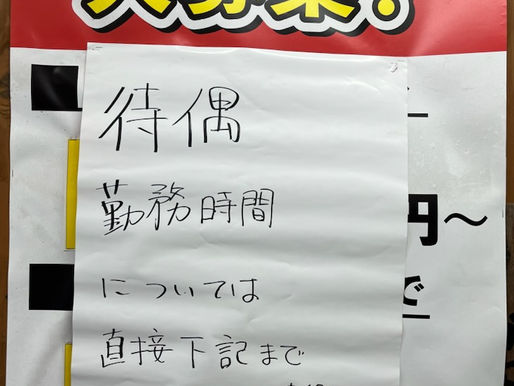 待偶
勤務時間
円〜
については
で
直接下記まで